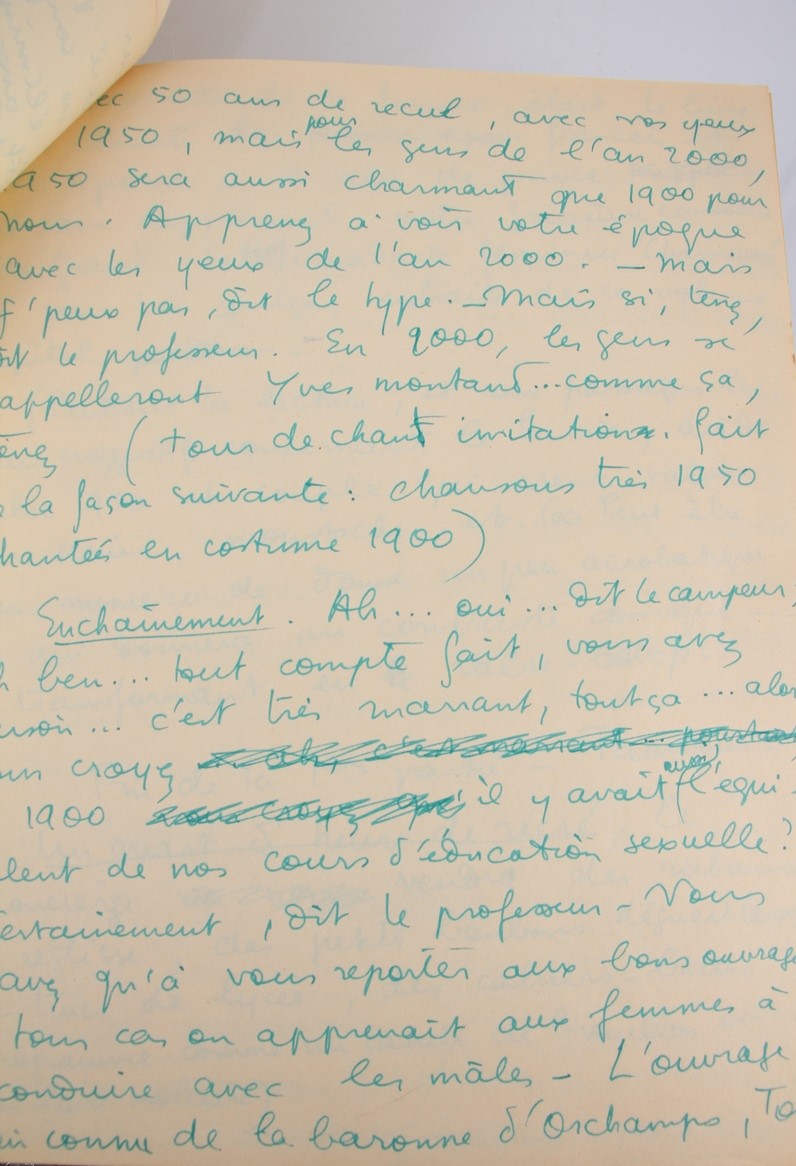 ec 50 ans de recul, avec vos yeux
1950, mais pour les gens de l'an 2000,
1950 sera aussi charmant que 1900 pour
nous. Apprenez à voir votre époque
avec les yeux de l'an 2000. — Mais
j'peux pas, dit le type. — Mais si, tenez,
dit le professeur. En 2000, les gens se
appelleront Yves montand... comme ça,
tenez (tour de chant imitation. fait
la façon suivante : chansons très 1950
hantées en costume 1900)
Enchaînement. Ah... oui... dit le campeur,
h ben... tout compte fait, vous avez
aison... c'est très marrant, tout ça... alor
ous croyez
1900 il y avait aussi l'équi
lent de nos cours d'éducation sexuelle?
ertainement, dit le professeur - Vous
avez qu'à vous reporter aux bons ouvrages
tous cas on apprenait aux femmes à
conduire avec les mâles - L'ouvrage
ien connu de la baronne d'Orchamps,